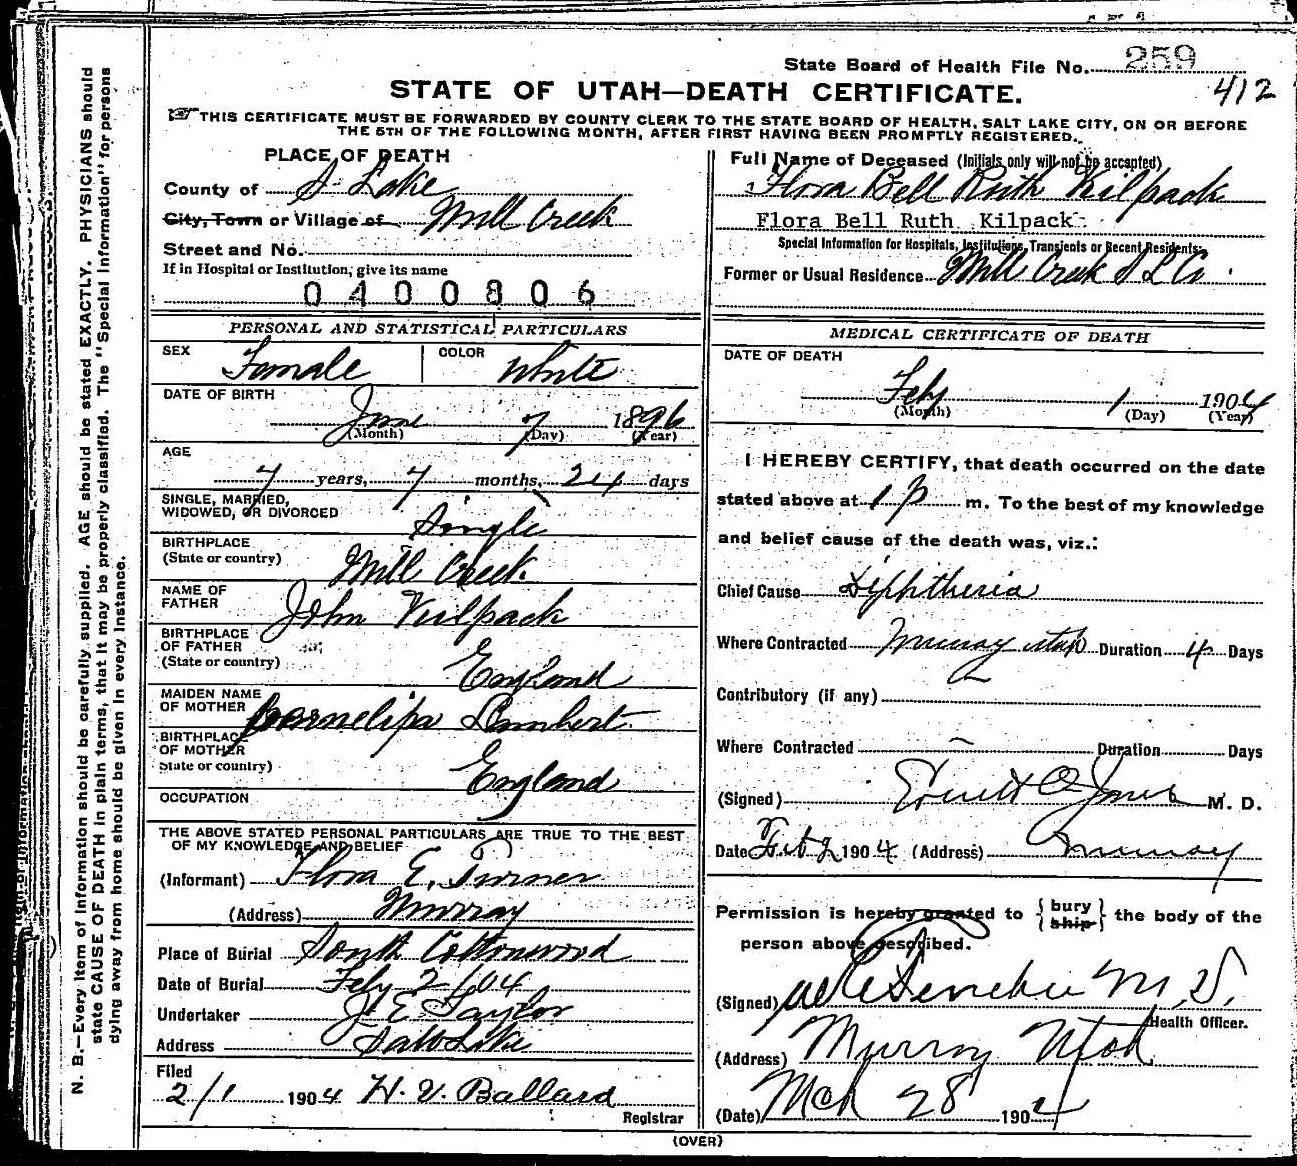 State Board of Health File No. 259
412
STATE OF UTAH—DEATH CERTIFICATE.
THIS CERTIFICATE MUST BE FORWARDED BY COUNTY CLERK TO THE STATE BOARD OF HEALTH, SALT LAKE CITY, ON OR BEFORE
THE 5TH OF THE FOLLOWING MONTH, AFTER FIRST HAVING BEEN PROMPTLY REGISTERED.
PLACE OF DEATH
County of S Lake
City, Town or Village of Mill Creek
Street and No.
If in Hospital or Institution, give its name
0400806
PERSONAL AND STATISTICAL PARTICULARS
SEX Female COLOR White
DATE OF BIRTH
June 7 1896
(Month) (Day) (Year)
AGE
7 years, 7 months, 24 days
SINGLE, MARRIED,
WIDOWED, OR DIVORCED Single
BIRTHPLACE
(State or country) Mill Creek
NAME OF
FATHER John Kilpack
BIRTHPLACE
OF FATHER
(State or country) England
MAIDEN NAME
OF MOTHER Lambert
BIRTHPLACE
OF MOTHER
State or country) England
OCCUPATION
THE ABOVE STATED PERSONAL PARTICULARS ARE TRUE TO THE BEST
OF MY KNOWLEDGE AND BELIEF
(Informant) Flora E. Turner
(Address) Murray
Place of Burial South Cottonwood
Date of Burial Feby 2/04
Undertaker J E Taylor
Address Salt Lake
Filed
2/1 1904 H. V. Ballard
Registrar
Full Name of Deceased (Initials only will not be accepted)
Flora Bell Ruth Kilpack
Flora Bell Ruth Kilpack
Special Information for Hospitals, Institutions, Transients or Recent Residents:
Former or Usual Residence Mill Creek S L Co
MEDICAL CERTIFICATE OF DEATH
DATE OF DEATH
Feby 1 1904
(Month) (Day) (Year)
I HEREBY CERTIFY, that death occurred on the date
stated above at 1 p m. To the best of my knowledge
and belief cause of the death was, viz.:
Chief Cause Diphtheria
Where Contracted Murray Utah Duration 4 Days
Contributory (if any)
Where Contracted — Duration Days
(Signed) Everett O Jones M. D.
Date Feb 2 1904 (Address) Murray
Permission is hereby granted to {bury ship} the body of the
person above described.
(Signed) M.D.
Health Officer.
(Address) Murray Utah
(Date) Mch 28 1904
(OVER)
N. B.—Every item of information should be carefully supplied. AGE should be stated EXACTLY. PHYSICIANS should
state CAUSE OF DEATH in plain terms, that it may be properly classified. The "Special Information" for persons
dying away from home should be given in every instance.